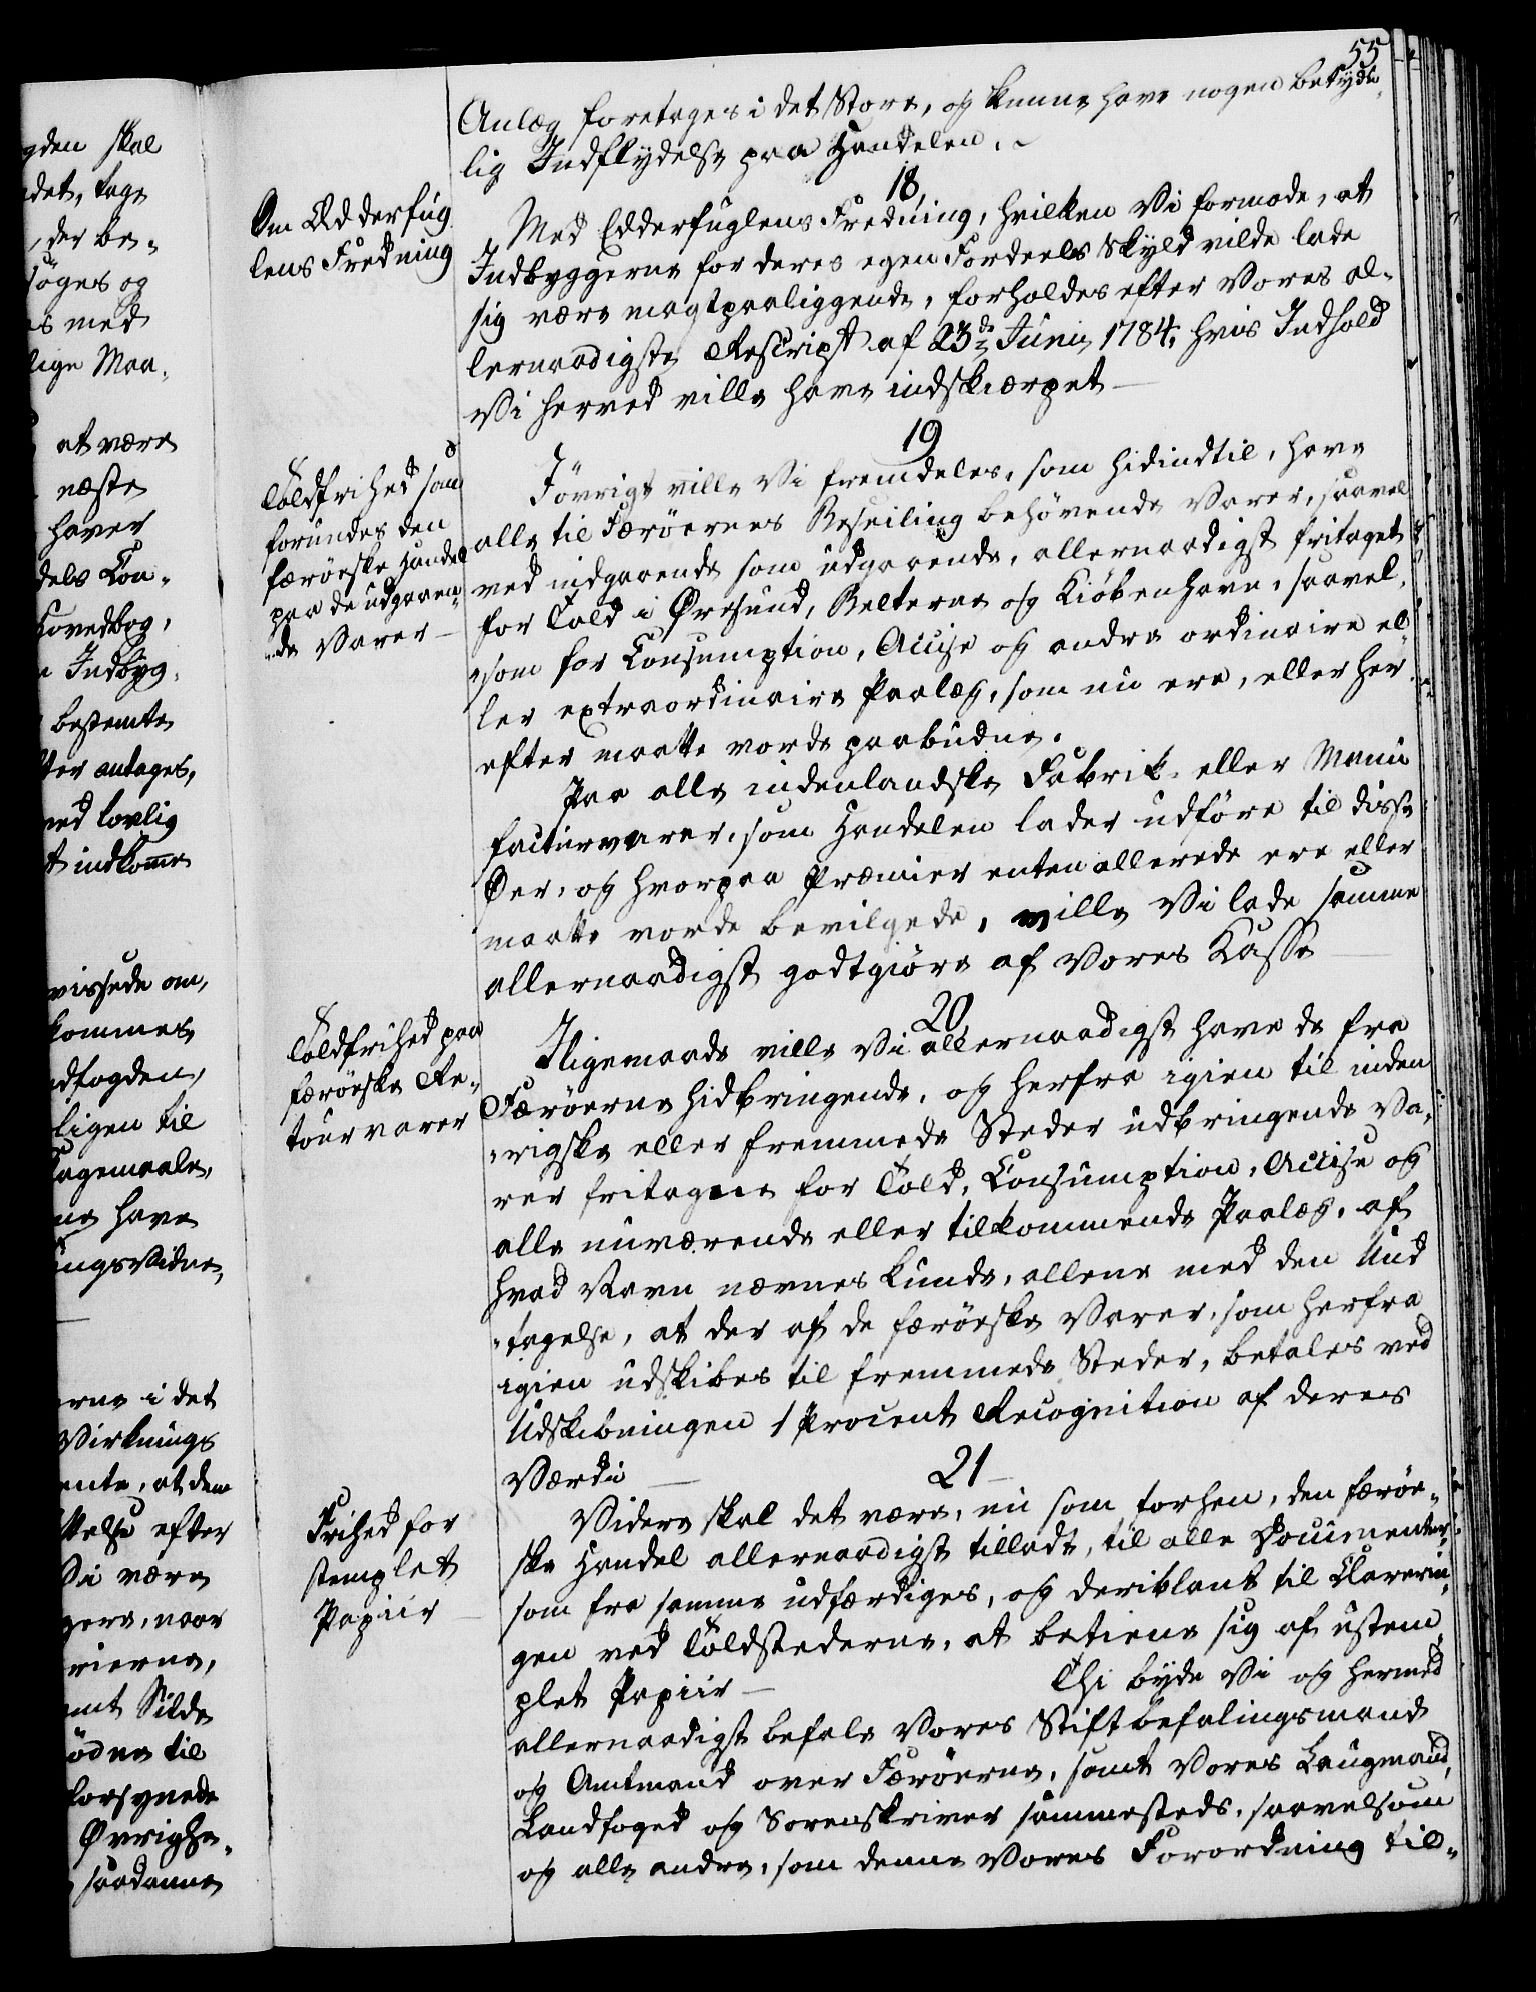 55
Anlæg foretages i det Store, og kunne have nogen betyde-
lig Indflydelse paa Handelen.
18.
Om Edderfug
lens Fredning
Med Edderfuglens Fredning, hvilken Vi formode, at
Indbyggerne for deres egen Fordeels Skyld vilde lade
sig være magtpaaliggende, forholdes efter Vores al-
lernaadigste Rescript af 23de Junii 1784, hvis Indhold
Vi herved ville have indskiærpet
19
Toldfrihed som
forundes den
færöeske Handel
paa de udgaaen-
de Varer
Jövrigt ville Vi fremdeles, som hidindtil, have
alle til Færöernes Beseiling behövende Varer, saavel
ved indgaaende som udgaaende, allernaadigst fritaget
for Told i Øresund, Belterne og Kiöbenhavn, saavel
som for Consumption, Accise og andre ordinaire el-
ler extraordinaire Paalæg, som nu ere, eller her-
efter maatte vorde paabudne.
Paa alle indenlandske Fabrik- eller Manu
facturvarer, som Handelen lader udföre til disse
Öer, og hvorpaa Præmier enten allerede ere eller
maatte vorde bevilgede, ville Vi lade samme
allernaadigst godtgiöre af Vores Kasse
20
Toldfrihed paa
færöeske Re-
tourvarer
Iligemaade ville Vi allernaadigst have de fra
Færöerne hidbringende, og herfra igien til inden
rigske eller fremmede Steder udbringende Va-
rer fritagne for Told, Consumption, Accise og
alle nuværende eller tilkommende Paalæg, af
hvad Navn nævnes kunde, allene med den Und
tagelse, at der af de færöeske Varer, som herfra
igien udskibes til fremmede Steder, betales ved
Udskibningen 1 Procent Recognition af deres
Værdi
21
Frihed for
stemplet
Papiir
Videre skal det være, nu som forhen, den færöe-
ske Handel allernaadigst tilladt, til alle Documenter,
som fra samme udfærdiges, og deriblant til Clarerin-
gen ved Toldstederne, at betiene sig af ustem-
plet Papiir
Thi byde Vi og hermed
allernaadigst befale Vores Stiftbefalingsmand
og Amtmand over Færöerne, samt Vores Laugmand,
Landfoged og Sorenskriver sammesteds, saavelsom
og alle andre, som denne Vores Forordning til-
gden skal
det, tage
, der be-
söges og
es med
lige Maa-
at være
næste
haver
dels Con-
Hovedbog,
Indbyg-
bestemte
ter antages,
ved lovlig
t indkomme
vissede om,
kommes
dfogden,
ligen til
agemaale,
ne have
ingsvidne-
erne i det
Virknings
ente, at dem
kelse efter
Vi være
gere, naar
rierne,
mt Silde
ödne til
forsynede
Øvrighe-
saadanne